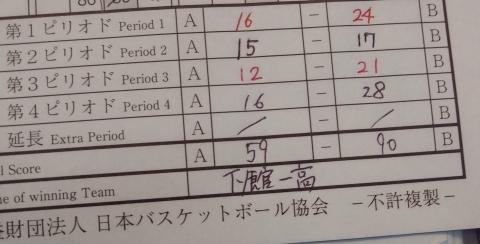 第1ピリオド Period 1 A 16 － 24 B
第2ピリオド Period 2 A 15 － 17 B
第3ピリオド Period 3 A 12 － 21 B
第4ピリオド Period 4 A 16 － 28 B
延長 Extra Period A ／ － ／ B
l Score A 59 － 90 B
e of winning Team 下館一高
財団法人 日本バスケットボール協会 －不許複製－